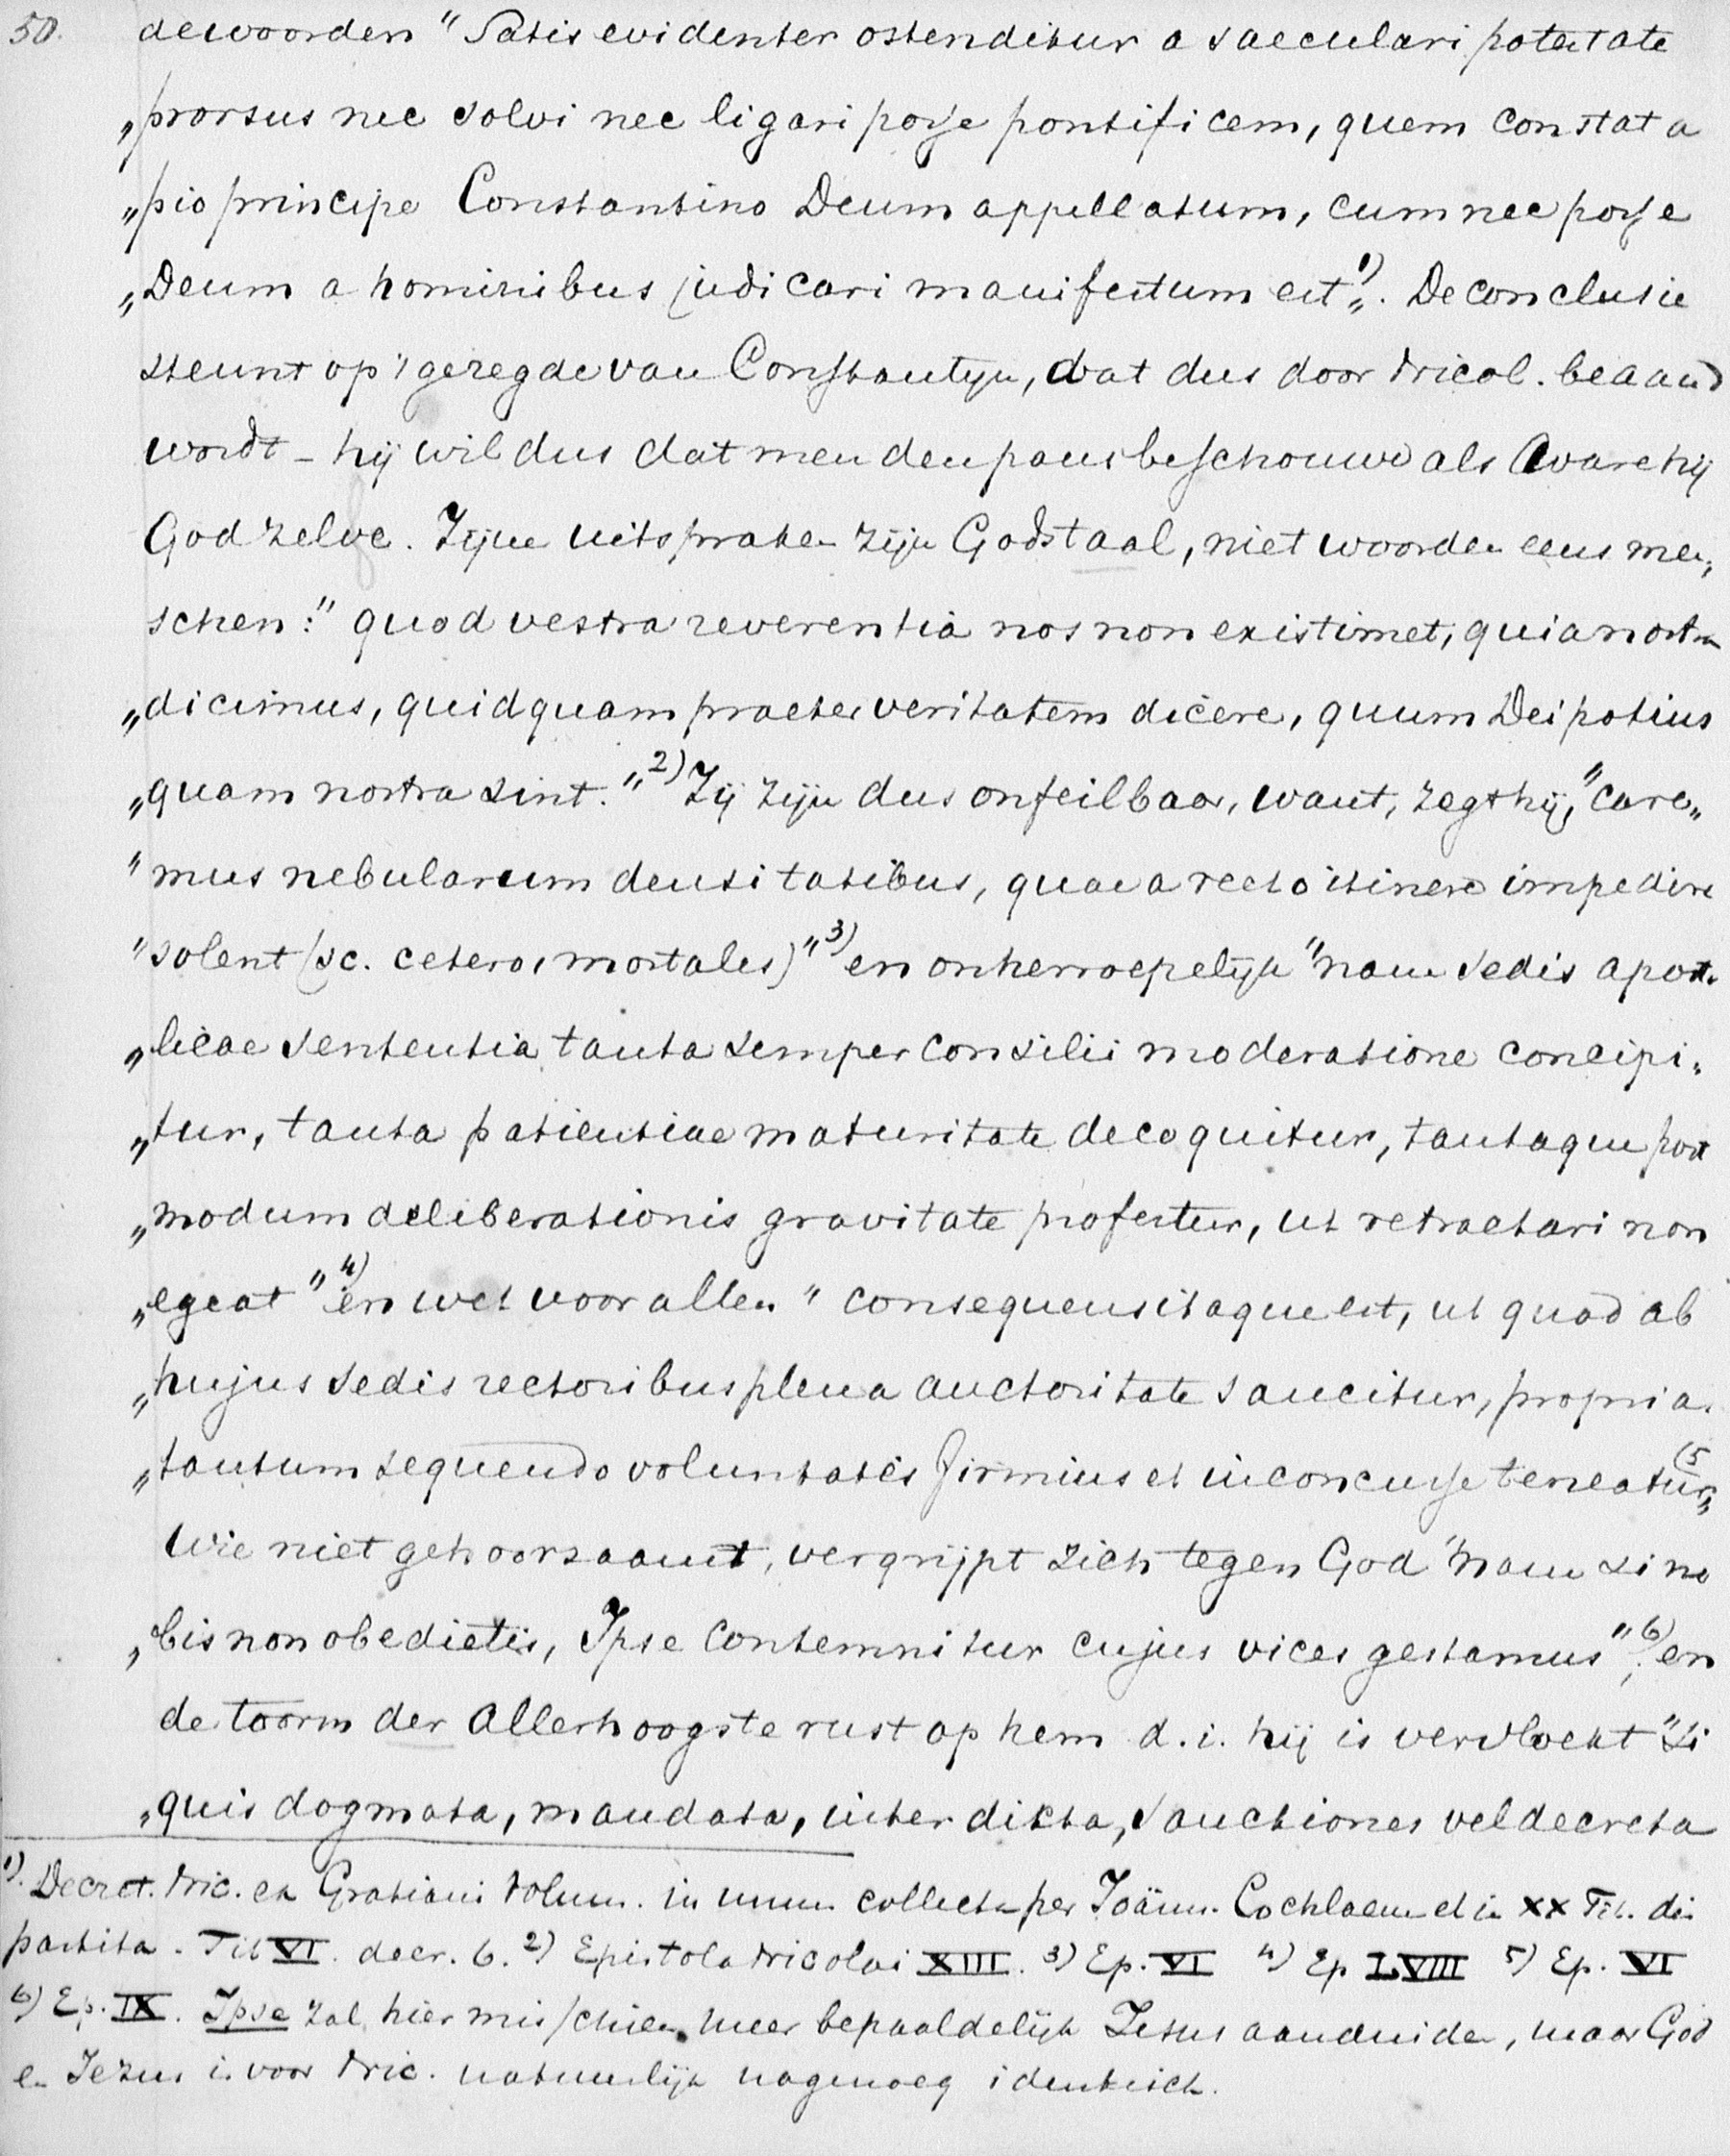 50. de woorden "Satis evidenter ostenditur a saeculari potestate
„prorsus nec solvi nec ligari posse pontificem, quem constat a
„pio principe Constantino Deum appellatum, cum nec posse
„Deum a hominibus judicari manifestum est„ 1). De conclusie
steunt op 't gezegde van Constantijn, dat dus door Nicol. beaamd
wordt - hij wil dus dat men den paus beschouwe als ware hij
God zelve. Zijne uitspraken zijn Gods taal, niet woorden eens men„
schen: "quod vestra reverentia nos non existimet, quia nostra
„dicimus, quidquam praeter veritatem dicere, quum Dei potius
„quam nostra sint." 2) Zij zijn dus onfeilbaar, want, zegt hij, "care„
"mus nebularum densitatibus, quae a recto itinere impedire
"solent (sc. ceteros mortales)" 3) en onherroepelijk "nam sedis aposto
„licae sententia tanta semper consilii moderatione concipi„
„tur, tanta patientiae maturitate decoquitur, tantaque post
„modum deliberationis gravitate profertur, ut retractari non
„egeat" 4) en wet voor allen "consequens itaque est, ut quod ab
„hujus sedis rectoribus plena auctoritate sancitur, propria
„tantum sequendo voluntates firmius et inconcusse teneatur„ (5
Wie niet gehoorzaamt, vergrijpt zich tegen God "nam si no
„bis non obedietis, Ipse contemnitur cujus vices gestamus" 6); en
de toorn der Allerhoogste rust op hem d.i. hij is vervloekt "si
„quis dogmata, mandata, interdikta, sanctiones vel decreta
1). Decret. Nic. ex Gratiani Volum. in unum collecta per Joänn. Cochlaeum et in XX Tit. dis
partita. Tit VI. decr. 6. 2) Epistola Nicolai XIII. 3) Ep. VI 4) Ep LVIII 5) Ep. VI
6) Ep. IX. Ipse zal hier misschien meer bepaaldelijk Jesus aanduiden, maar God
en Jezus is voor Nic. natuurlijk nagenoeg identisch.